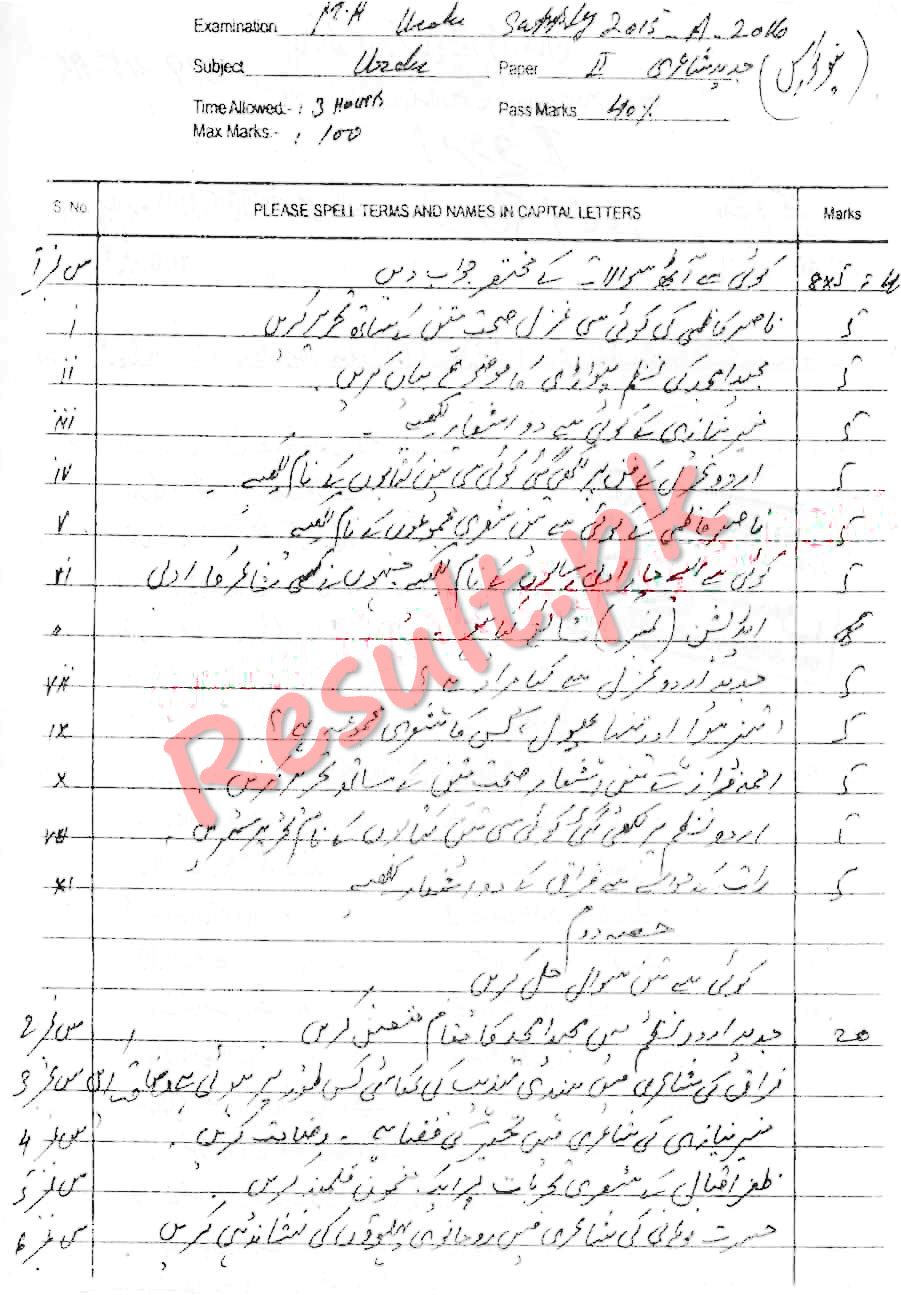 Examination M.A Urdu Supply 2015 - A - 2016
Subject Urdu Paper II جدید شاعری
Time Allowed:- : 3 Hours Pass Marks 40%
Max Marks:- : 100
S. No. PLEASE SPELL TERMS AND NAMES IN CAPITAL LETTERS Marks
کوئی سے آٹھ سوالات کے مختصر جواب دیں 8x5 =
i ناصر کاظمی کی کوئی سی غزل صحت متن کے ساتھ تحریر کریں 5
ii مجید امجد کی نظم پنواڑی کا موضوع بیان کریں۔ 5
iii منیر نیازی کے کوئی سے دو اشعار لکھیے۔ 5
iv اردو غزل کے فن پر لکھی گئی کوئی سی تین کتابوں کے نام لکھیے۔ 5
v ناصر کاظمی کے کوئی سے تین شعری مجموعوں کے نام لکھیے 5
vi کوئی سے ایسے چار ادبی رسالوں کے نام لکھیے جنہوں نے کسی شاعر کا ادبی 5
ایڈیشن (نمبر) شائع کیا ہے۔
جدید اردو غزل سے کیا مراد ہے؟ 5
ix تیز ہوا اور تنہا پھول، کس کا شعری مجموعہ ہے؟ 5
x احمد فراز کے تین اشعار صحت متن کے ساتھ تحریر کریں۔ 5
اردو نظم پر لکھی گئی کوئی سی تین کتابوں کے نام تحریر کریں۔
xi رات کے حوالے سے فراق کے دو اشعار لکھیے 5
حصہ دوم
کوئی سے تین سوال حل کریں
س نمبر 2 جدید اردو نظم میں مجید امجد کا مقام متعین کریں۔ 20
س نمبر 3 فراق کی شاعری میں ہندی تہذیب کی عکاسی کس طور پر ہوئی ہے
س نمبر 4 منیر نیازی کی شاعری میں تحیر کی فضا ہے۔ وضاحت کریں۔
س نمبر 5 ظفر اقبال کے شعری تجربات پر ایک مضمون قلمبند کریں۔
س نمبر 6 حسرت موہانی کی شاعری میں رومانوی پہلوؤں کی نشاندہی کریں
Result.pk